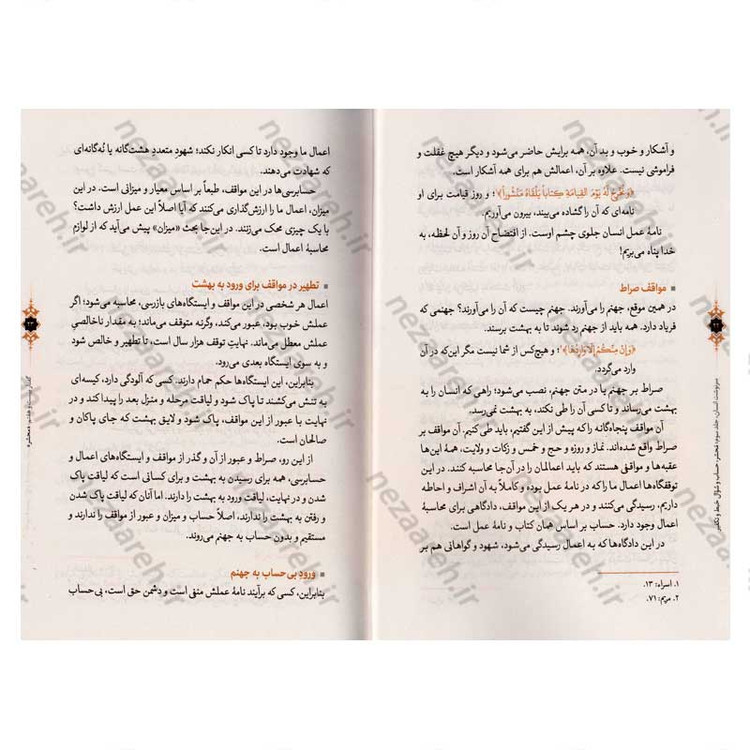 و آشکار و خوب و بد آن، همه برایش حاضر می‌شود و دیگر هیچ غفلت و
فراموشی نیست. علاوه بر آن، اعمالش هم برای همه آشکار است.
﴿وَنُخْرِجُ لَهُ يَوْمَ القِيامَةِ كِتاباً يَلْقاهُ مَنْشُوراً﴾؛ و روز قیامت برای او
نامه‌ای که آن را گشاده می‌بیند، بیرون می‌آوریم.
نامۀ عمل انسان جلوی چشم اوست. از افتضاح آن روز و آن لحظه، به
خدا پناه می‌بریم!
مواقف صراط
در همین موقع، جهنم را می‌آورند. جهنم چیست که آن را می‌آورند؟ جهنمی که
فریاد دارد. همه باید از جهنم رد شوند تا به بهشت برسند.
﴿وَإِنْ مِنْكُمْ إِلّا وارِدُها﴾؛ و هیچ‌کس از شما نیست مگر این‌که در آن
وارد می‌گردد.
صراط بر جهنم یا در متن جهنم، نصب می‌شود؛ راهی که انسان را به
بهشت می‌رساند و تا کسی آن را طی نکند، به بهشت نمی‌رسد.
آن مواقف پنجاه‌گانه را که پیش از این گفتیم، باید طی کنیم. آن مواقف بر
صراط واقع شده‌اند. نماز و روزه و حج و خمس و زکات و ولایت، همۀ این‌ها
عقبه‌ها و مواقفی هستند که باید اعمالمان را در آن‌جا محاسبه کنند. در این
توقفگاه‌ها اعمال ما را که در نامۀ عمل بوده و کاملاً به آن اشراف و احاطه
داریم، رسیدگی می‌کنند و در هر یک از این مواقف، دادگاهی برای محاسبۀ
اعمال وجود دارد. حساب بر اساس همان کتاب و نامۀ عمل است.
در این دادگاه‌ها که به اعمال رسیدگی می‌شود، شهود و گواهانی هم بر
۱. اسراء: ۱۳.
۲. مریم: ۷۱.
اعمال ما وجود دارد تا کسی انکار نکند؛ شهودِ متعددِ هشت‌گانه یا نُه‌گانه‌ای
که شهادت می‌دهند.
حسابرسی‌ها در این مواقف، طبعاً بر اساس معیار و میزانی است. در این
میزان، اعمال ما را ارزش‌گذاری می‌کنند که آیا اصلاً این عمل ارزش داشت؟
با یک چیزی محک می‌زنند. در این‌جا بحث «میزان» پیش می‌آید که از لوازم
محاسبۀ اعمال است.
تطهیر در مواقف برای ورود به بهشت
اعمال هر شخصی در این مواقف و ایستگاه‌های بازرسی، محاسبه می‌شود؛ اگر
عملش خوب بود، عبور می‌کند، وگرنه متوقف می‌ماند؛ به مقدار ناخالصیِ
عملش معطل می‌ماند. نهایتِ توقف هزار سال است، تا تطهیر و خالص شود
و به سوی ایستگاه بعدی می‌رود.
بنابراین، این ایستگاه‌ها حکم حمام دارند. کسی که آلودگی دارد، کیسه‌ای
به تنش می‌کشند تا پاک شود و لیاقت مرحله و منزل بعد را پیدا کند و در
نهایت با عبور از این مواقف، پاک شود و لایق بهشت که جای پاکان و
صالحان است.
از این رو، صراط و عبور از آن و گذر از مواقف و ایستگاه‌های اعمال و
حسابرسی، همه برای رسیدن به بهشت و برای کسانی است که لیاقت پاک
شدن و در نهایت، لیاقت ورود به بهشت را دارند. اما آنان که لیاقت پاک شدن
و رفتن به بهشت را ندارند، اصلاً حساب و میزان و عبور از مواقف را ندارند و
مستقیم و بدون حساب به جهنم می‌روند.
ورودِ بی‌حساب به جهنم
بنابراین، کسی که برآیند نامۀ عملش منفی است و دشمن حق است، بی‌حساب
nezaareh.ir